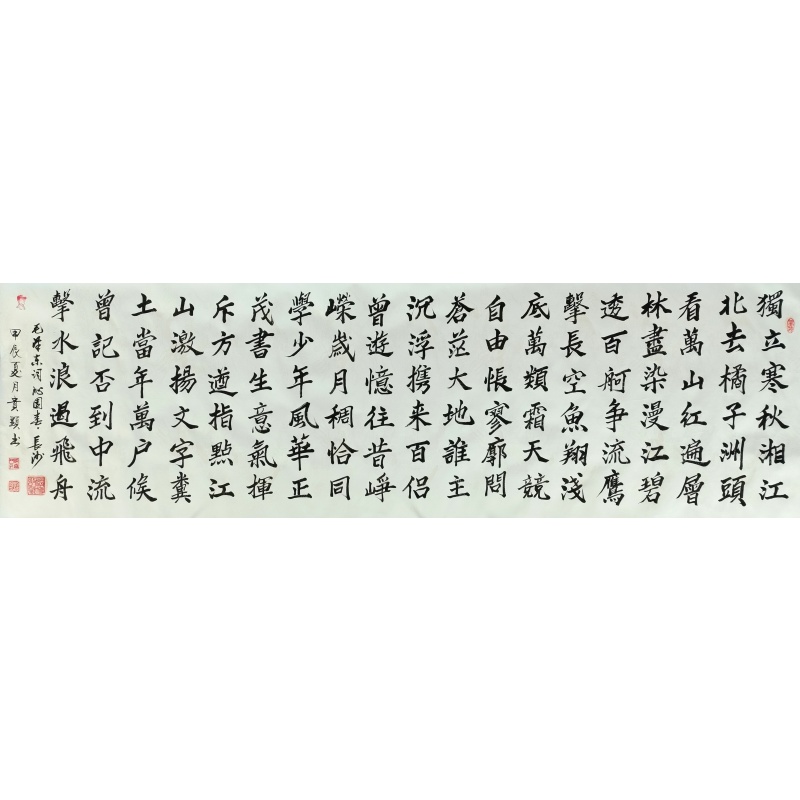 獨立寒秋湘江
北去橘子洲頭
看萬山紅遍層
林盡染漫江碧
透百舸争流鷹
擊長空魚翔淺
底萬類霜天競
自由悵寥廓問
蒼茫大地誰主
沉浮携来百侣
曾遊憶往昔崢
嶸歲月稠恰同
學少年風華正
茂書生意氣揮
斥方遒指點江
山激揚文字糞
土當年萬户侯
曾記否到中流
擊水浪過飛舟
毛澤东词沁園春長沙
甲辰夏月貴书